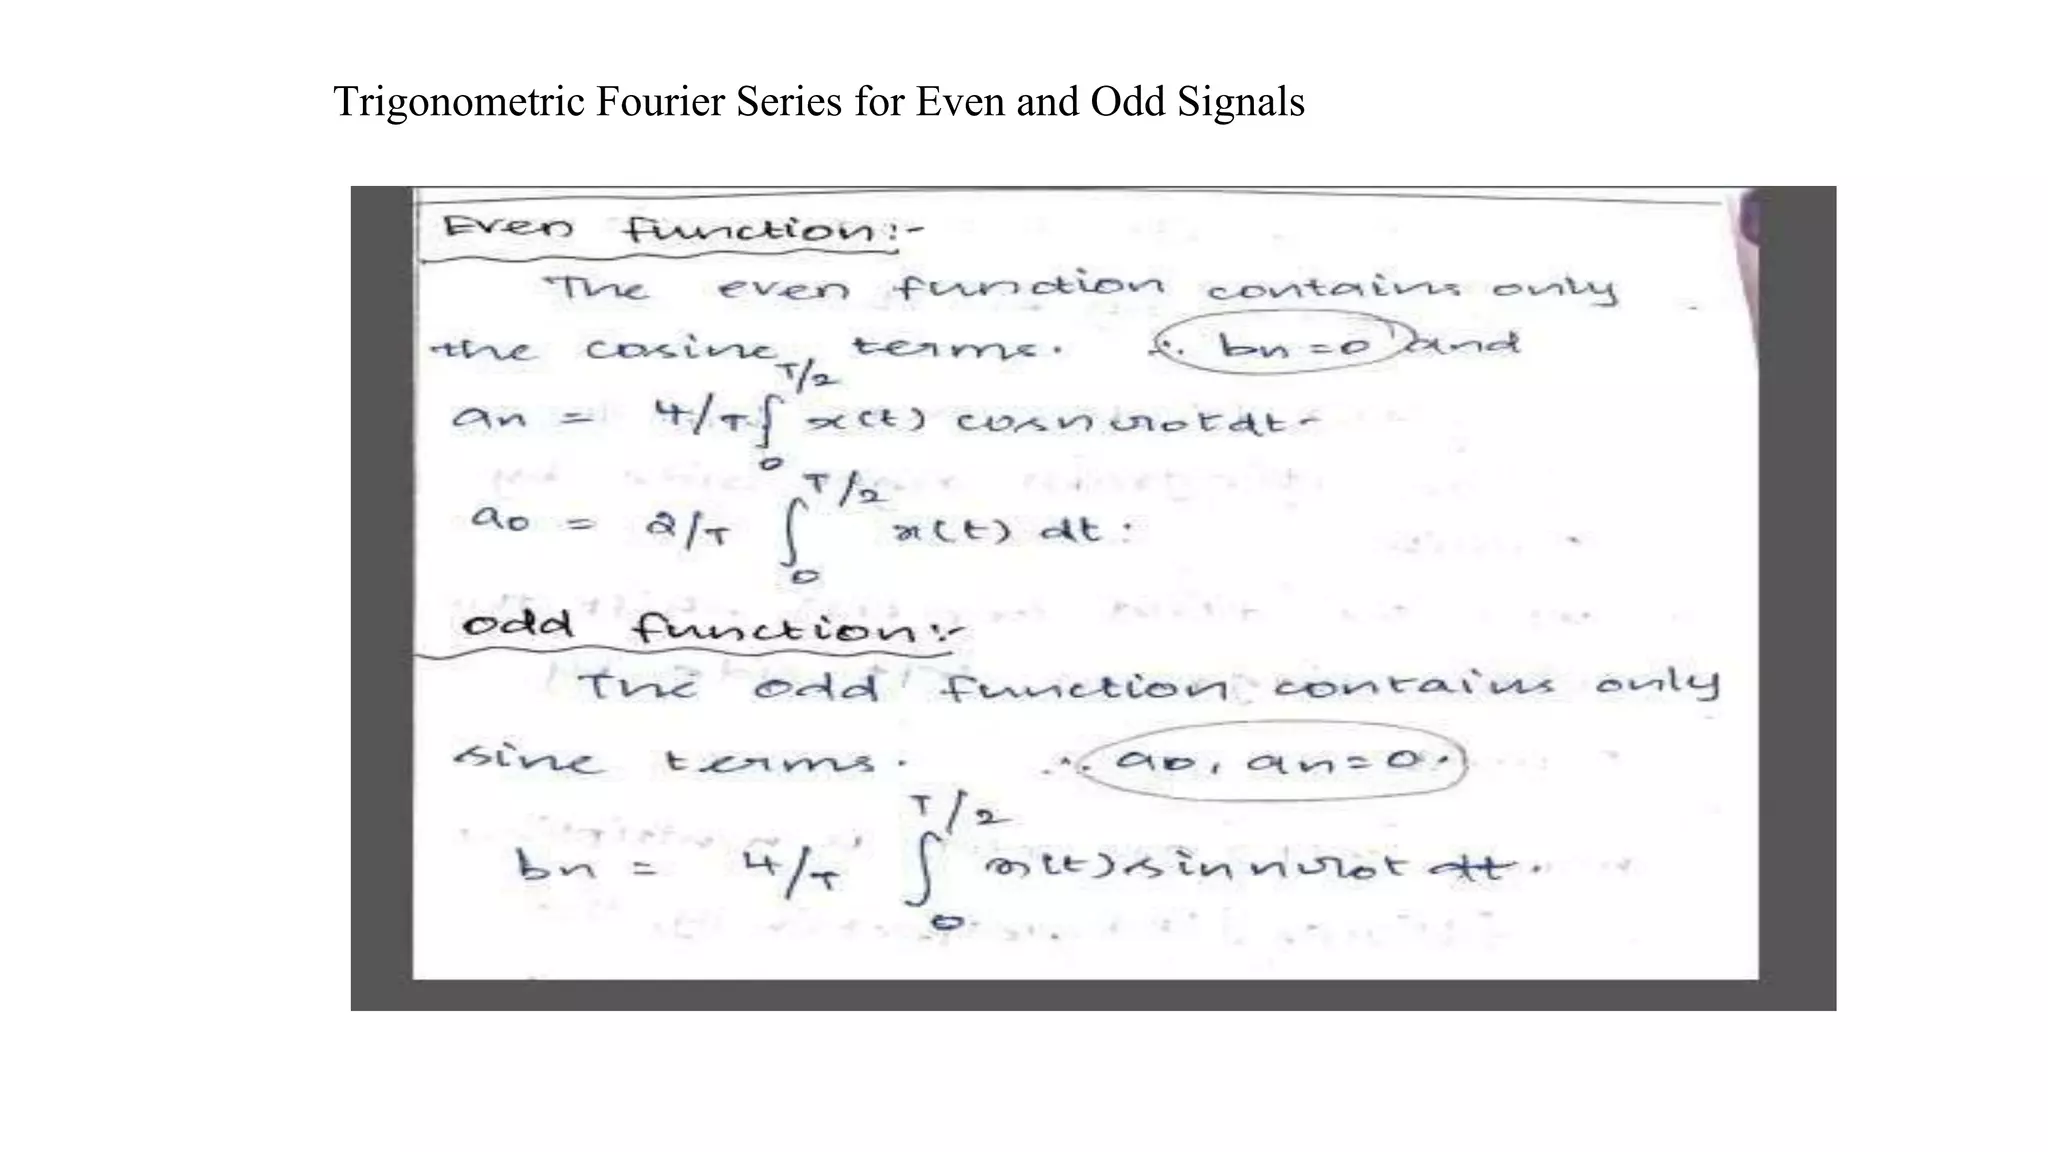 Trigonometric Fourier Series for Even and Odd Signals
Even function:-
The even function contains only
the cosine terms. ∴ bn=0 and
an = 4/T ∫₀^T/2 x(t) cosnω0t dt.
a0 = 2/T ∫₀^T/2 x(t) dt.
odd function:-
The odd function contains only
sine terms. ∴ a0, an=0.
bn = 4/T ∫₀^T/2 x(t) sinnω0t dt.